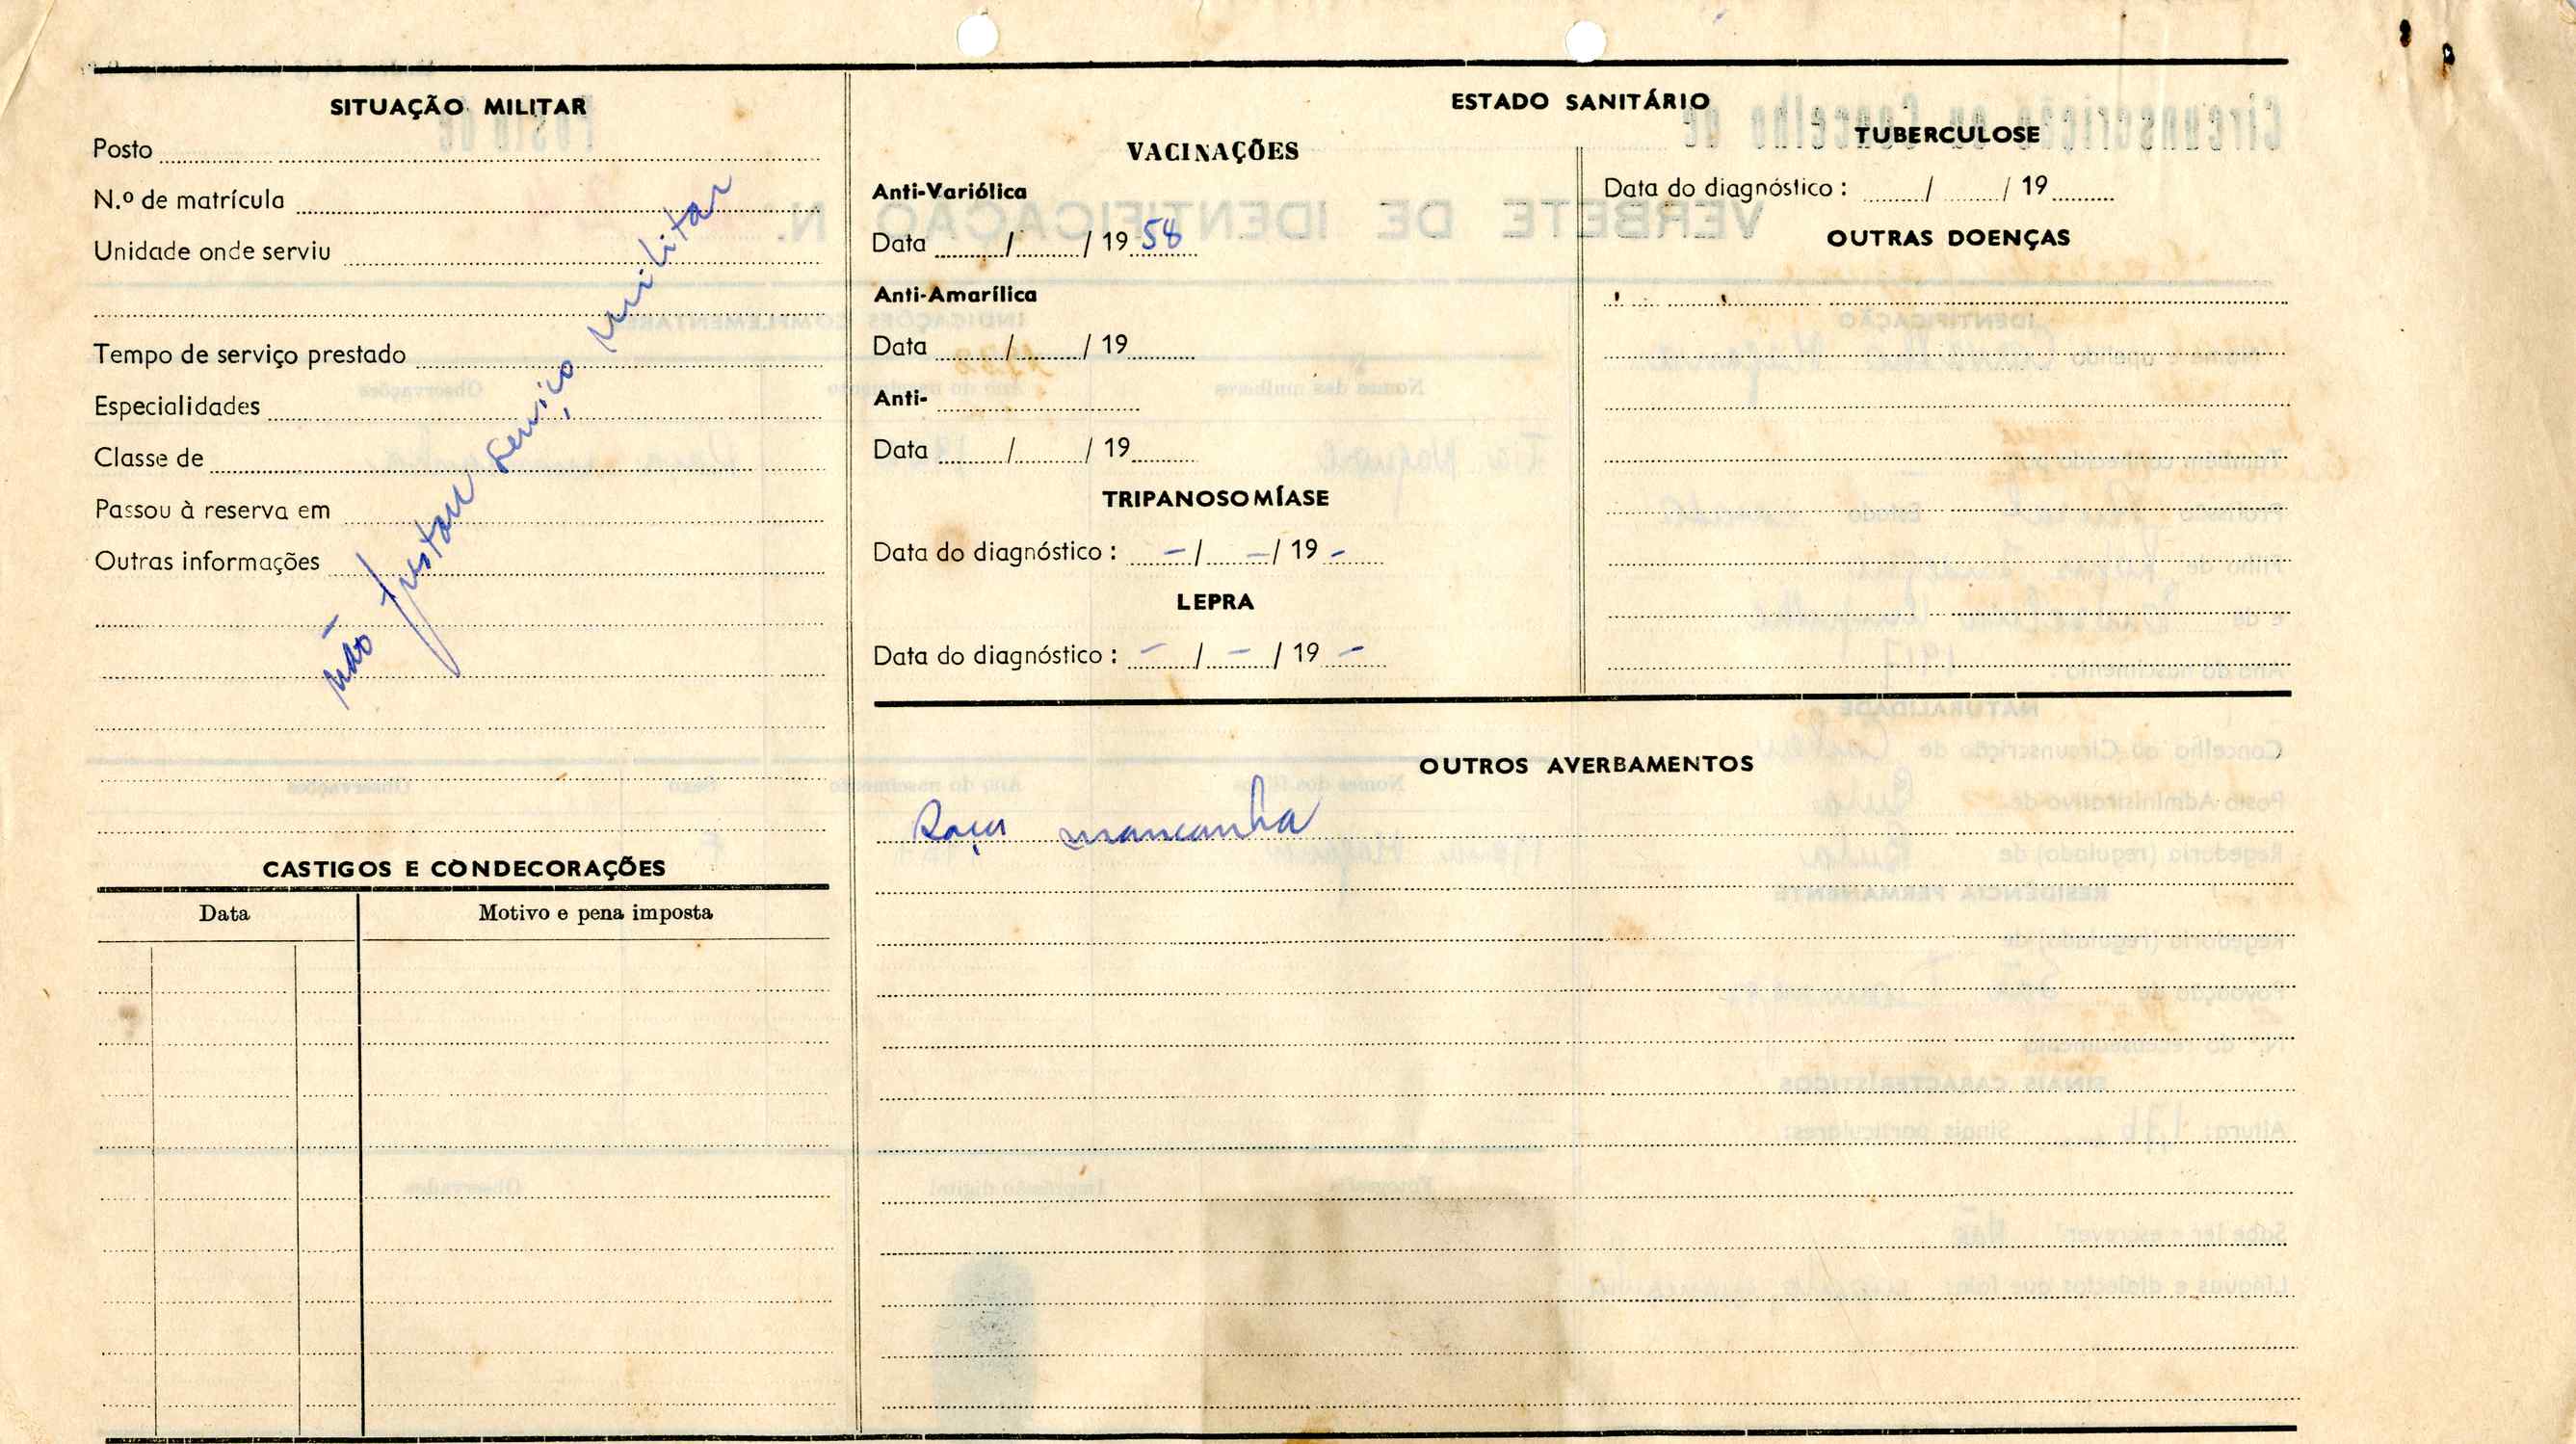 SITUAÇÃO MILITAR
Posto
N.º de matrícula
Unidade onde serviu
Tempo de serviço prestado
Especialidades
Classe de
Passou à reserva em
Outras informações
não prestou serviço militar
CASTIGOS E CONDECORAÇÕES
Data Motivo e pena imposta
ESTADO SANITÁRIO
VACINAÇÕES
Anti-Variólica
Data / / 19 58
Anti-Amarílica
Data / / 19
Anti-
Data / / 19
TRIPANOSOMÍASE
Data do diagnóstico : – / – / 19 –
LEPRA
Data do diagnóstico : – / – / 19 –
TUBERCULOSE
Data do diagnóstico : / / 19
OUTRAS DOENÇAS
OUTROS AVERBAMENTOS
Raça mancanha